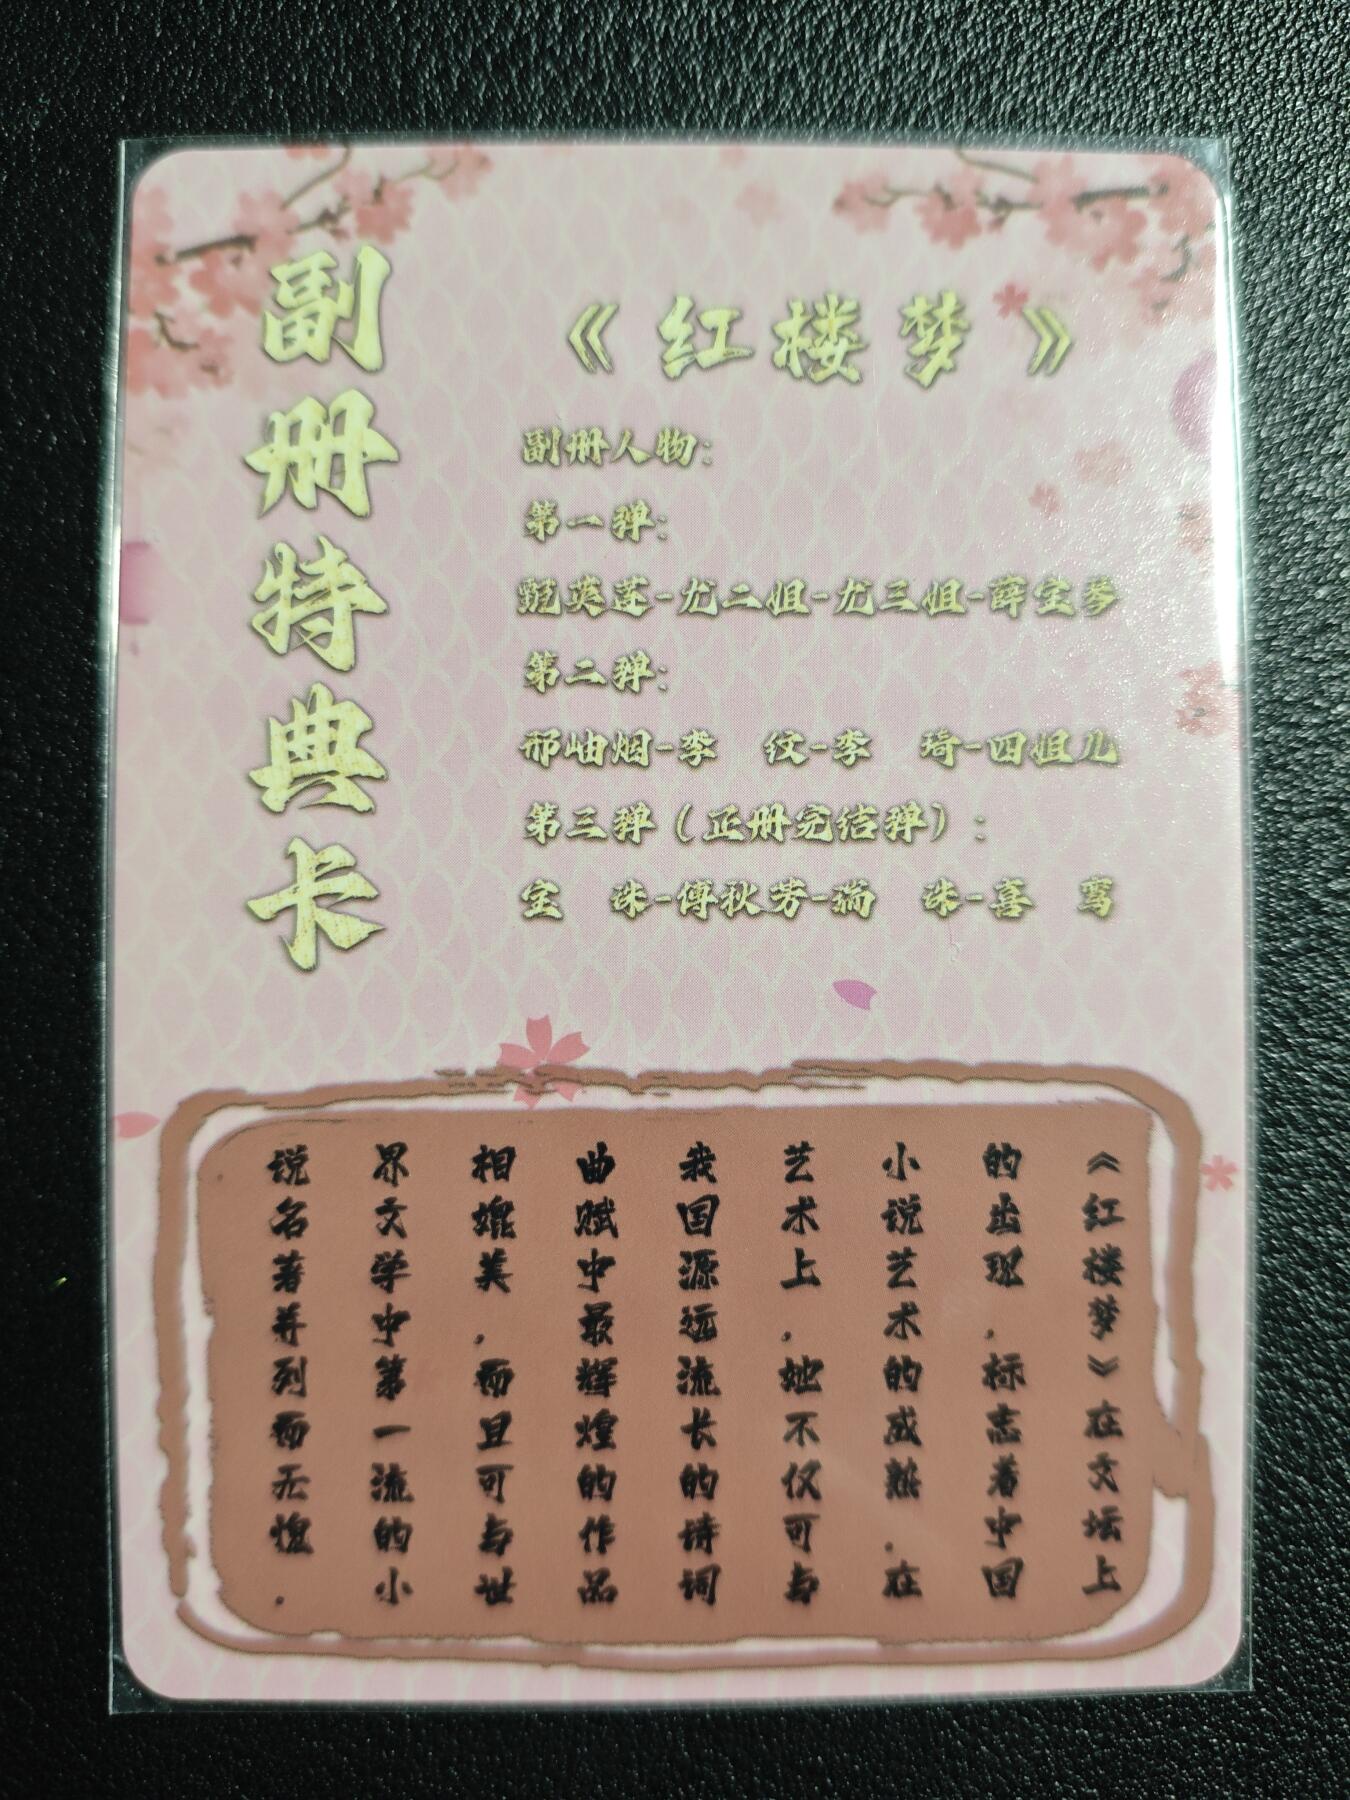 副册特典卡
《红楼梦》
副册人物：
第一弹：
甄英莲-尤二姐-尤三姐-薛宝琴
第二弹：
邢岫烟-李　纹-李　琦-四姐儿
第三弹（正册完结弹）：
宝　珠-傅秋芳-瑞　珠-喜　鸾
《红楼梦》在文坛上
的出现，标志着中国
小说艺术的成熟，在
艺术上，她不仅可与
我国源远流长的诗词
曲赋中最辉煌的作品
相媲美，而且可与世
界文学中第一流的小
说名著并列而无愧。